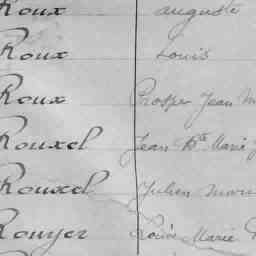 Roux auguste
Roux Louis
Roux Prosper Jean M
Rouxel Jean Bte Marie J
Rouxel Julien Marie
Rouyer Louis Marie